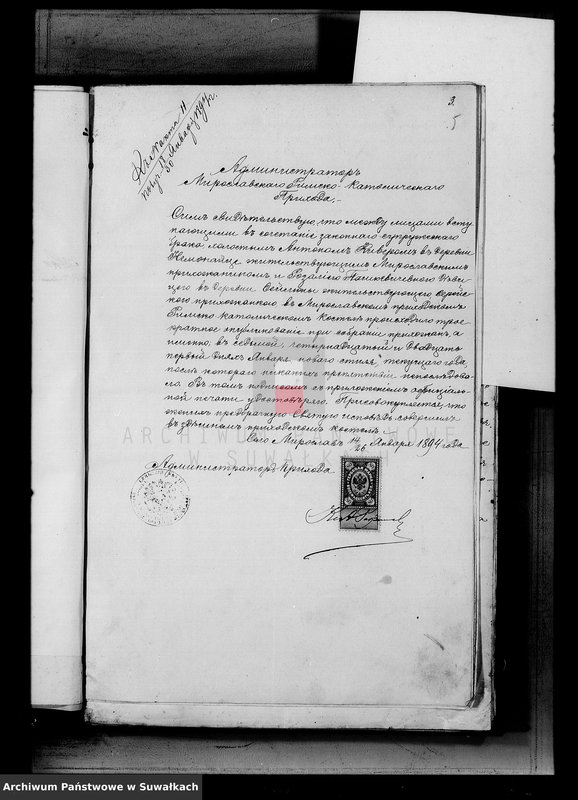 3.
5
Къ акту 11
получ. 30 Января 1894 г.
Администраторъ
Мирославскаго Римско-Католическаго
Прихода.
Симъ свидѣтельствую, что между лицами всту
пающими въ сочетаніе законнаго супружескаго
брака холостымъ Антономъ въ деревни
Немонайце жительствующимъ Мирославскимъ
прихожаниномъ и Розаліею
въ деревни Сейлюны жительствующею
прихожанкою въ Мирославскомъ приходскомъ
Римско католическомъ костелѣ происходило трое
кратное опубликованіе при собраніи прихожанъ, а
именно: въ седьмый, четырнадцатый и двадцать
первый дняхъ Января новаго стиля текущаго года,
послѣ котораго никакихъ препятствій непослѣдова
ло. Въ томъ подписомъ съ приложеніемъ оффиціаль
ной печати удостовѣряю. Присовокупляется, что
женихъ предбрачную Святую исповѣдь совершилъ
въ здѣшномъ приходскомъ костелѣ.
Село Мирославъ 14/26 Января 1894 года
Администраторъ Прихода
ARCHIWUM PAŃSTWOWE
W SUWAŁKACH
Archiwum Państwowe w Suwałkach